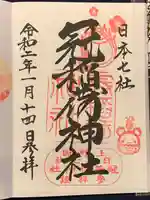 日本七社
冠稲荷神社
令和二年一月十四日参拝